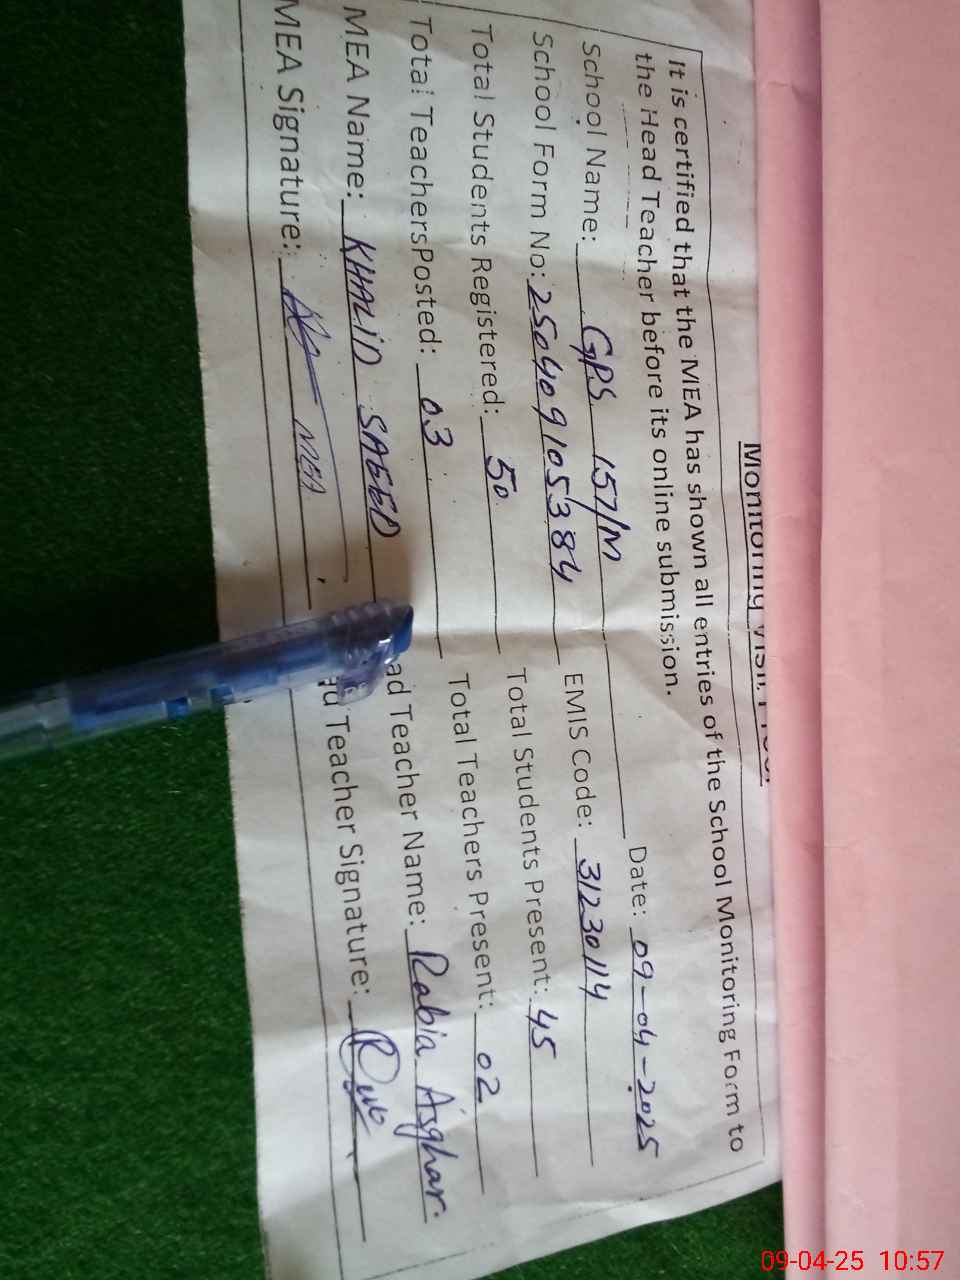 Monitoring Visit Proof
It is certified that the MEA has shown all entries of the School Monitoring Form to
the Head Teacher before its online submission.
School Name: GPS 157/M Date: 09-04-2025
School Form No: 250409105384 EMIS Code: 31230114
Total Students Registered: 50 Total Students Present: 45
Total TeachersPosted: 03 Total Teachers Present: 02
MEA Name: KHALID SAEED ad Teacher Name: Rabia Asghar.
MEA Signature: MEA ad Teacher Signature:
09-04-25 10:57